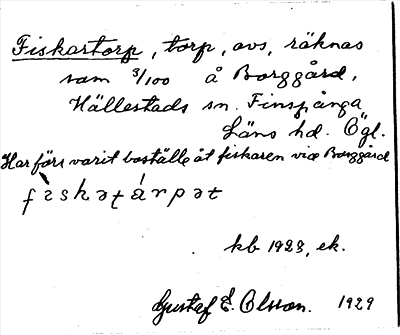 Fiskartorp, torp, avs, räknas
som 3/100 å Borggård,
Hällestads sn. Finspånga
Läns hd. Ögl.
Har förr varit boställe åt fiskaren vid Borggård
fìskạtárpət
kb 1923, ek.
Gustaf E. Olsson. 1929